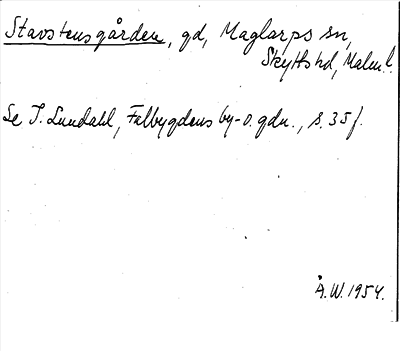 Stavstensgården, gd, Maglarps sn,
Skytts hd, Malm. l.
Se I. Lundahl, Falbygdens by- o. gdn., s. 35 f.
Å.W. 1954.